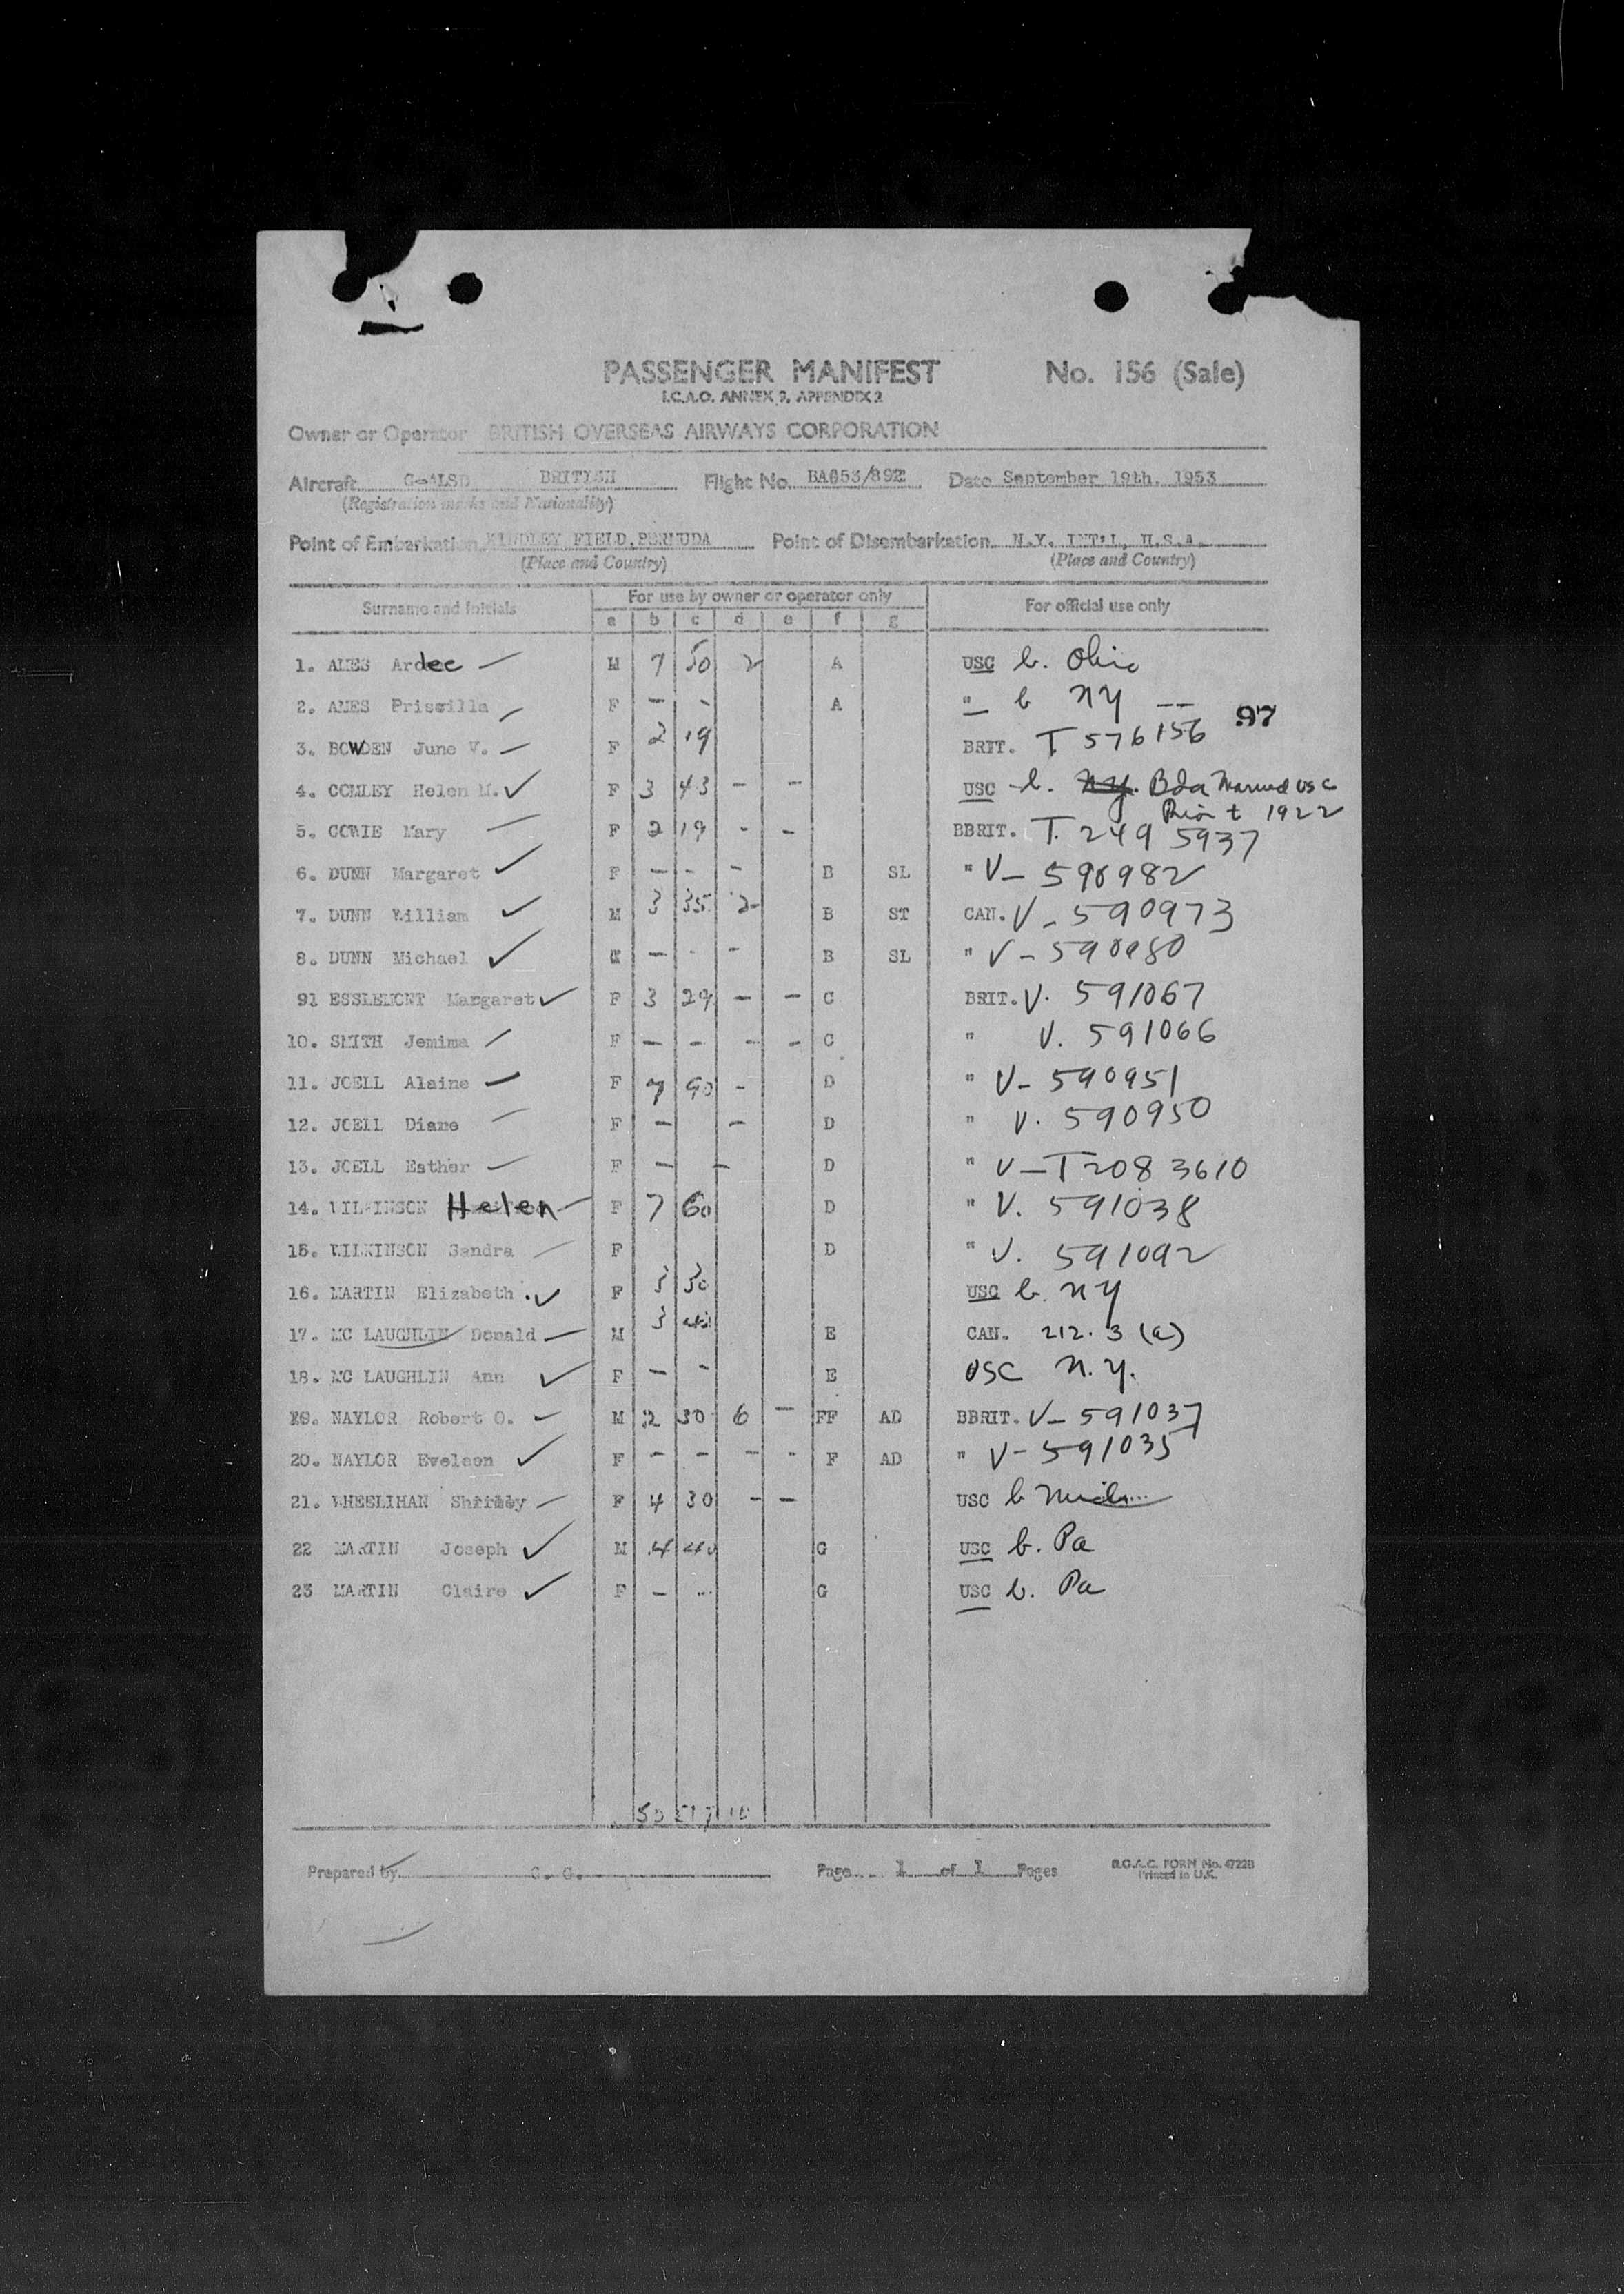 PASSENGER MANIFEST No. 156 (Sale)
I.C.A.O. ANNEX 9, APPENDIX 2
Owner or Operator BRITISH OVERSEAS AIRWAYS CORPORATION
Aircraft G-ALSD BRITISH Flight No. BA653/892 Date September 19th. 1953
(Registration marks and Nationality)
Point of Embarkation KINDLEY FIELD, BERMUDA Point of Disembarkation N.Y. INT'L, U.S.A.
(Place and Country) (Place and Country)
Surname and Initials For use by owner or operator only For official use only
a b c d e f g
1. AMES Ardee M 7 50 2 A USC b. Ohio
2. AMES Priscilla F - - A " b NY --
97
3. BOWDEN June V. F 2 19 BRIT. T 576156
4. COMLEY Helen M. F 3 43 - - USC b. N.Y. Bda Married USC
Prior t 1922
5. COWIE Mary F 2 19 - - BBRIT. T. 249 5937
6. DUNN Margaret F - - - B SL " V- 590982
7. DUNN William M 3 35 2- B ST CAN. V- 590973
8. DUNN Michael - - - B SL " V- 590980
91 ESSLEMONT Margaret F 3 29 - - C BRIT. V. 591067
10. SMITH Jemima F - - - - C " V. 591066
11. JOELL Alaine F 7 90 - D " V- 590951
12. JOELL Diane F - - D " V. 590950
13. JOELL Esther F - - D " V-T208 3610
14. WILKINSON Helen F 7 60 D " V. 591038
15. WILKINSON Sandra F D " V. 591092
16. MARTIN Elizabeth F 3 30 USC b. NY
17. MC LAUGHLIN Donald M 3 40 E CAN. 212.3 (a)
18. MC LAUGHLIN Ann F - - E USC N.Y.
19. NAYLOR Robert O. M 2 30 6 - FF AD BBRIT. V- 591037
20. NAYLOR Eveleen F - - - - F AD " V- 591035
21. WHEELIHAN F 4 30 - - USC b
22 MARTIN Joseph M 4 40 G USC b. Pa
23 MARTIN Claire F - - G USC b. Pa
Prepared by C. G. Page 1 of 1 Pages
B.O.A.C. FORM No. 4722B
Printed in U.K.